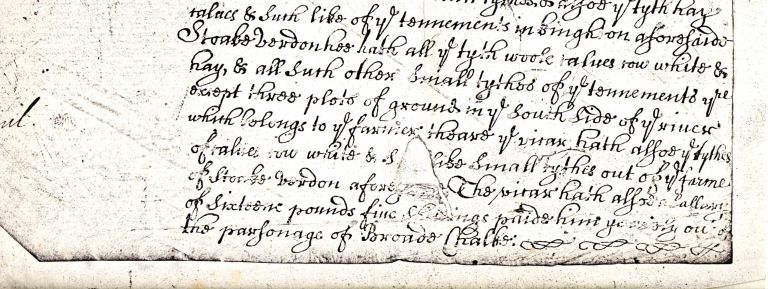 alsoe yͤ tyth hay
calues & such like of yͤ tennements in knigh on aforesaide
Stoake Verdon hee hath all yͤ tyth woole calues cow white &
hay, & all such other small tythes of yͤ tennements yͬᵉ
except three plots of ground in yͤ south side of yͤ river
which belongs to yͤ farmer theare yͤ vicar hath alsoe yͤ tythes
of calues cow white & like small tythes out of yͤ farme
of Stocke Verdon afore The vicar hath alsoe a sallary
of sixteene pounds five shillings paide him yearely ou
the parsonage of Broade Chalke: